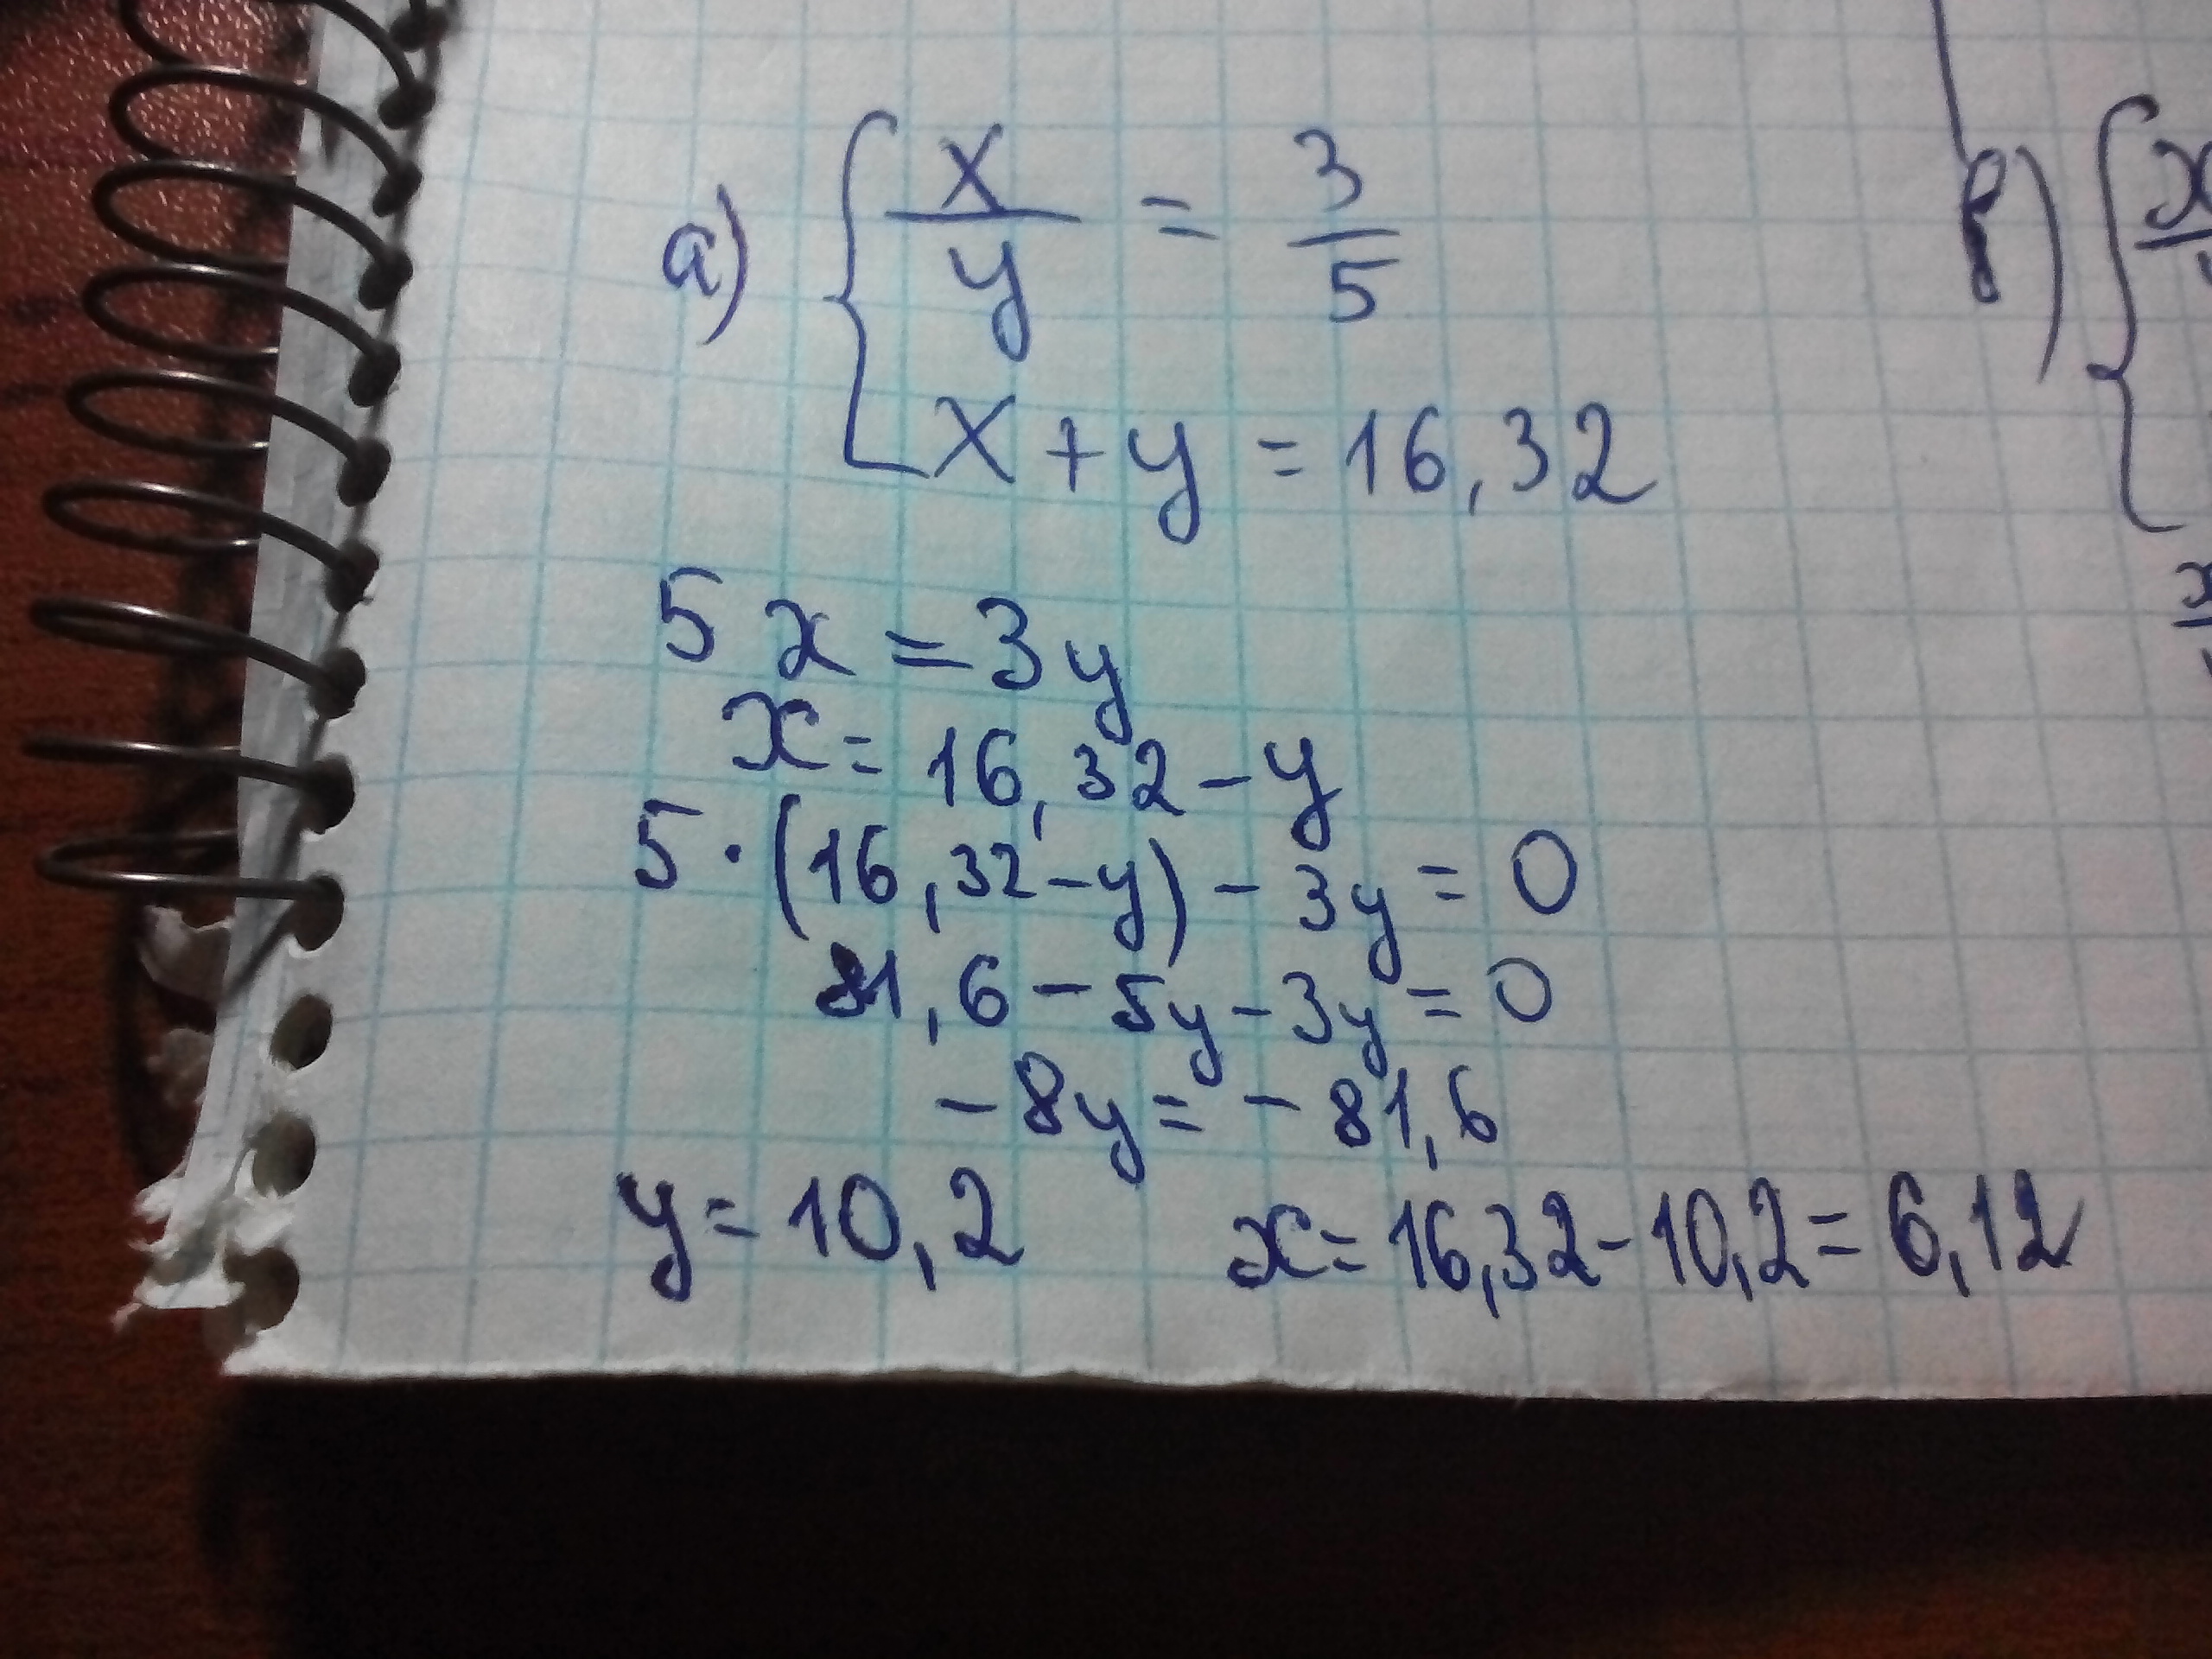 а) { x/y = 3/5
x + y = 16,32
5x = 3y
x = 16,32 - y
5 · (16,32 - y) - 3y = 0
81,6 - 5y - 3y = 0
- 8y = - 81,6
y = 10,2 x = 16,32 - 10,2 = 6,12